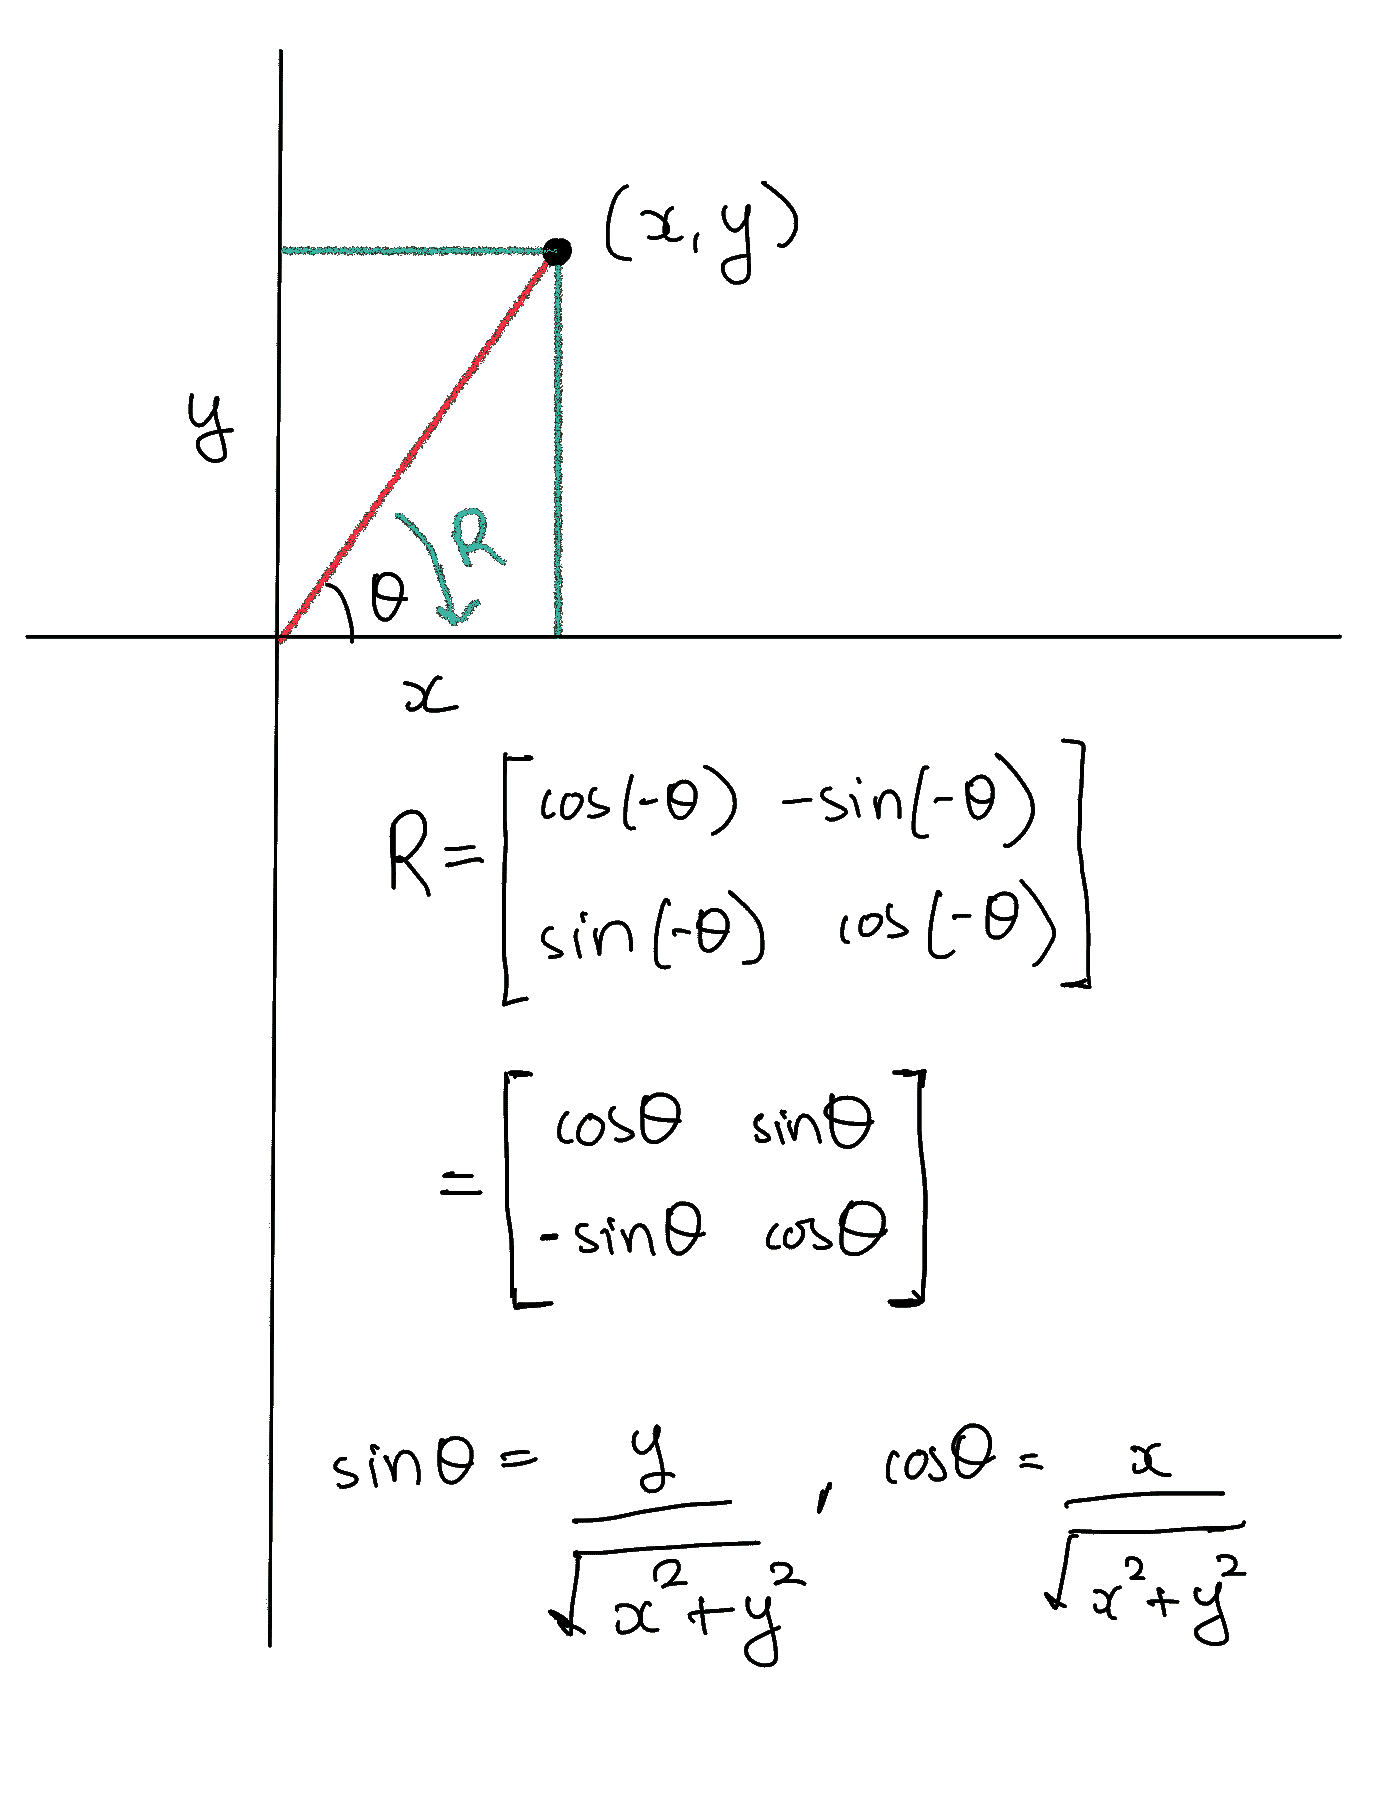 (x, y)
y
R
θ
x
R = [ cos(-θ) -sin(-θ)
sin(-θ) cos(-θ) ]
= [ cosθ sinθ
-sinθ cosθ ]
sinθ = y / √(x²+y²) , cosθ = x / √(x²+y²)